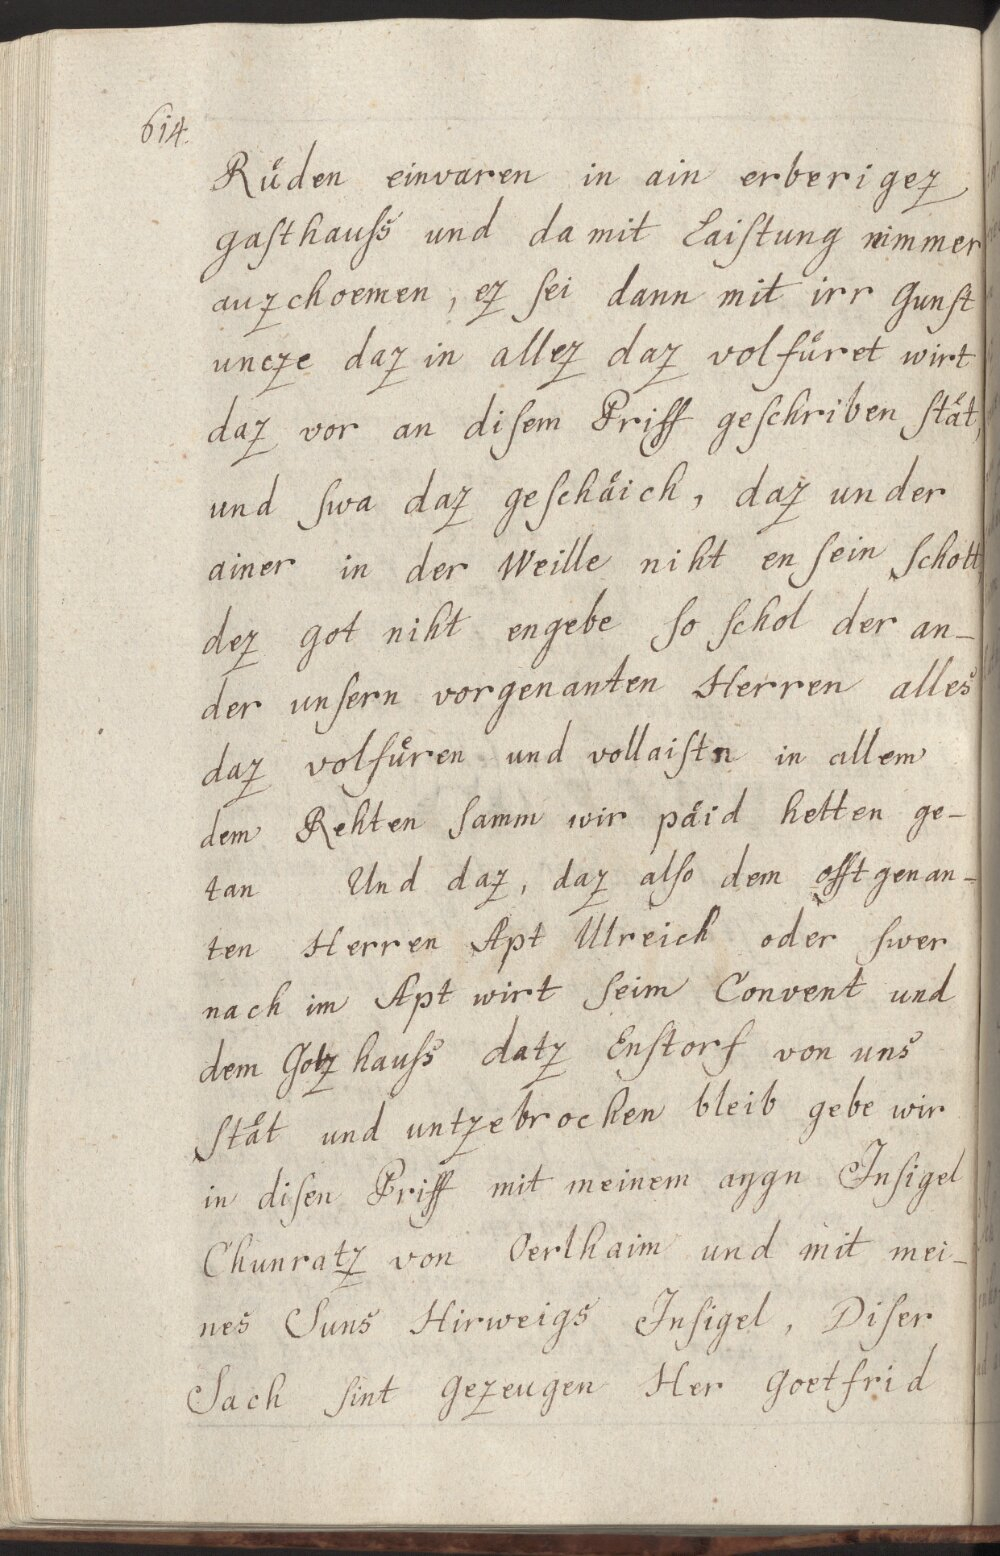 614.
Rüden einvaren in ain erberigez
gasthauss und damit Laistung nimmer
auzchoemen, ez sei dann mit irr Gunst
uncze daz in allez daz volfüret wirt
daz vor an disem Priff geschriben stät,
und swa daz geschäich, daz under
ainer in der Weille niht ensein schott
dez got niht engebe so schol der an-
der unsern vorgenanten Herren alles
daz volfüren und vollaistn in allem
dem Rehten samm wir päid hetten ge-
tan Und daz, daz also dem offtgenan-
ten Herren Apt Ulreich oder swer
nach im Apt wirt seim Convent und
dem Gotzhauss datz Enstorf von uns
stät und untzebrochen bleib gebe wir
in disen Priff mit meinem aygn Insigel
Chunratz von Oerlhaim und mit mei-
nes Suns Hirweigs Insigel, Diser
Sach sint gezeugen Her Goetfrid